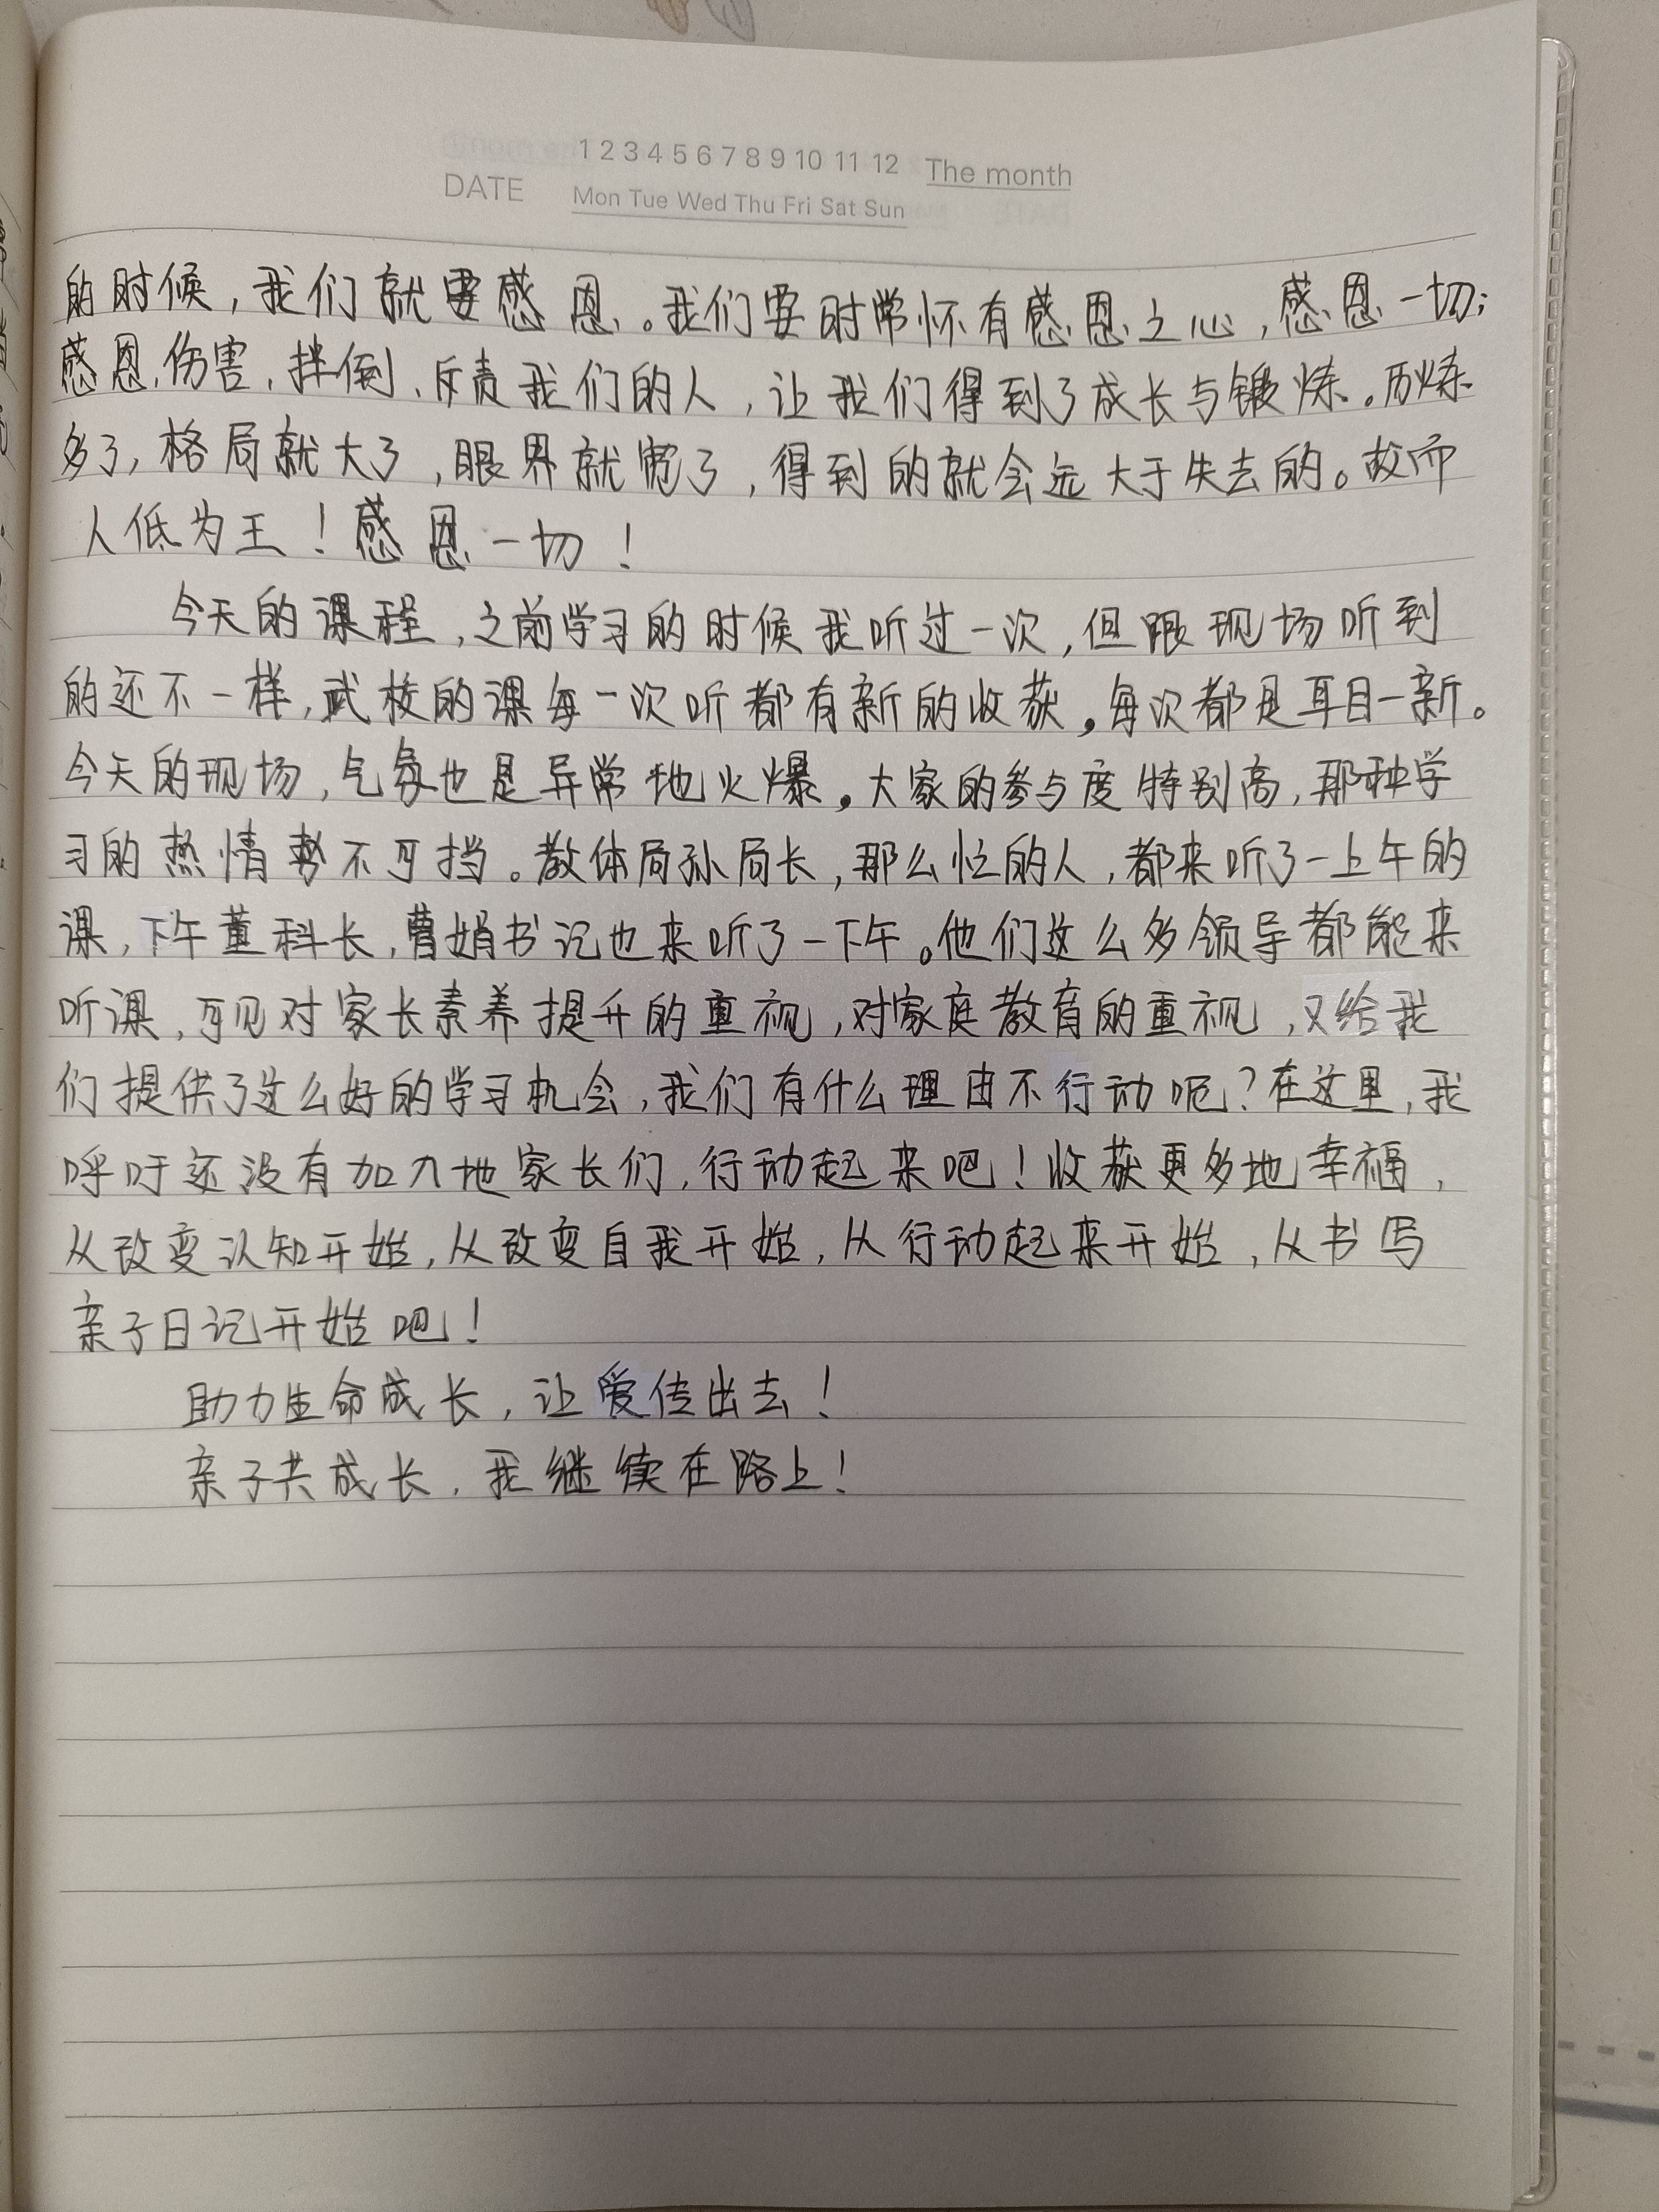 1 2 3 4 5 6 7 8 9 10 11 12 The month
DATE Mon Tue Wed Thu Fri Sat Sun
的时候，我们就要感恩。我们要时常怀有感恩之心，感恩一切；
感恩伤害、拌倒、斥责我们的人，让我们得到了成长与锻炼。历炼
多了，格局就大了，眼界就宽了，得到的就会远大于失去的。故而
人低为王！感恩一切！
今天的课程，之前学习的时候我听过一次，但跟现场听到
的还不一样，武校的课每一次听都有新的收获，每次都是耳目一新。
今天的现场，气氛也是异常地火爆。大家的参与度特别高，那种学
习的热情势不可挡。教体局孙局长，那么忙的人，都来听了一上午的
课，下午董科长，曹娟书记也来听了一下午。他们这么多领导都能来
听课，可见对家长素养提升的重视，对家庭教育的重视，又给我
们提供了这么好的学习机会，我们有什么理由不行动呢？在这里，我
呼吁还没有加入地家长们，行动起来吧！收获更多地幸福，
从改变认知开始，从改变自我开始，从行动起来开始，从书写
亲子日记开始吧！
助力生命成长，让爱传出去！
亲子共成长，我继续在路上！